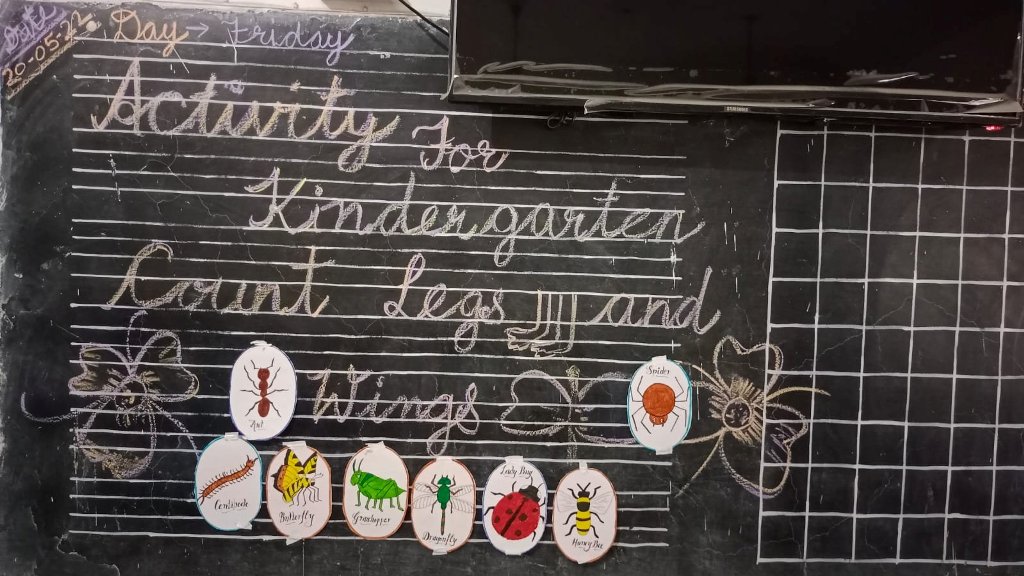 Date
Day → Friday
Activity For
Kindergarten
Count Legs and
Wings
Spider
Ant
Centipede
Butterfly
Grasshopper
Dragonfly
Lady Bug
Honey Bee
SAMSUNG